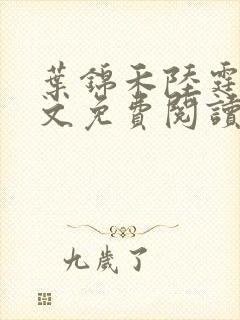 葉錦禾陸霆
文免費閱讀
九歲了